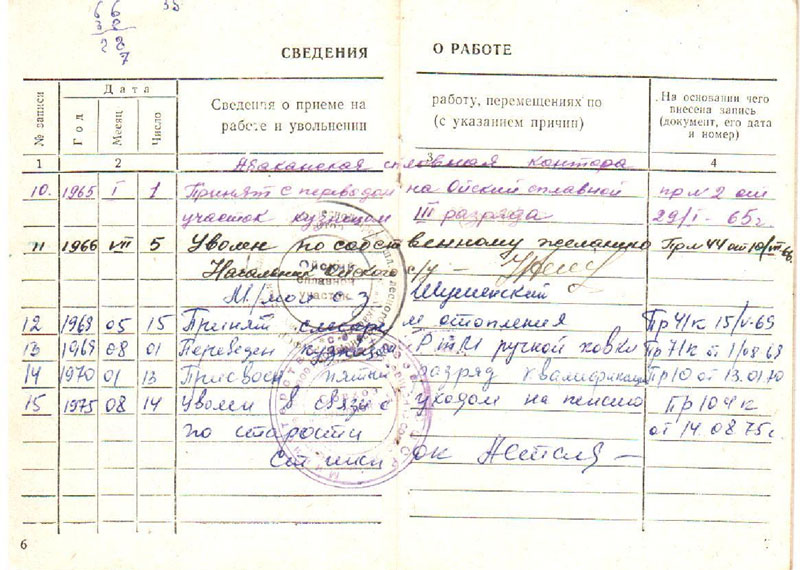 66
38
28
7
33
СВЕДЕНИЯ О РАБОТЕ
№ записи
Дата
Год
Месяц
Число
Сведения о приеме на работу, перемещениях по
работе и увольнении (с указанием причин)
На основании чего
внесена запись
(документ, его дата
и номер)
1 2 3 4
Абаканская сплавная контора
10. 1965 I 1 Принят с переводом на Ойский сплавной пр №2 от
участок кузнецом III разряда 29/I-65г.
11 1966 VII 5 Уволен по собственному желанию Пр №44 от
Начальник Ойского с/у —
Ойский
сплавной
участок
Шушенский
12 1969 05 15 Принят слесарем отопления Пр 41к 15/V-69
13 1969 08 01 Переведен кузнецом РТМ ручной ковки Пр 71к от 1/08 69
14 1970 01 13 Присвоен пятый разряд квалификации Пр 10 от 13.01 70
15 1975 08 14 Уволен в связи с уходом на пенсию Пр 104 к
по старости от 14.08 75г.
Ст инсп ок
6